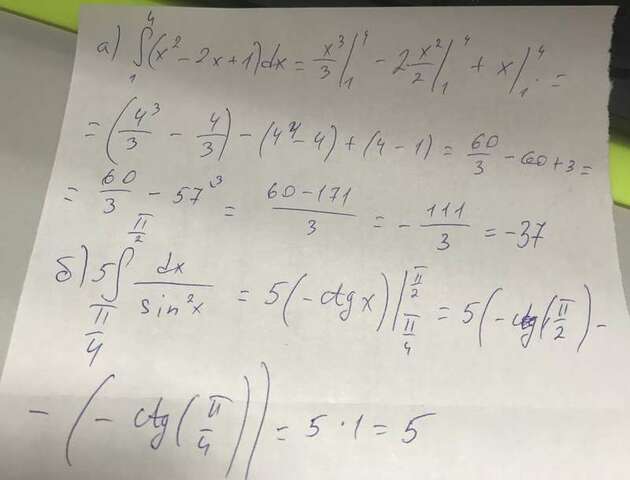 а) ∫₁⁴ (x² - 2x + 1)dx = x³/3 |₁⁴ - 2 x²/2 |₁⁴ + x |₁⁴ =
= (4³/3 - 4/3) - (4⁴ - 4) + (4 - 1) = 60/3 - 60 + 3 =
= 60/3 - 57³ = (60 - 171)/3 = - 111/3 = -37
б) 5 ∫_{π/4}^{π/2} dx/sin²x = 5(-ctgx) |_{π/4}^{π/2} = 5(-ctg(π/2) -
- (-ctg(π/4))) = 5 · 1 = 5